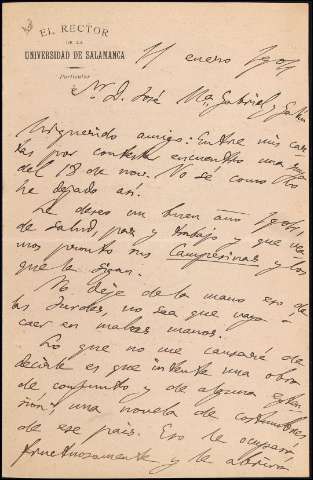 EL RECTOR
DE LA
UNIVERSIDAD DE SALAMANCA
Particular
11 enero 1904
Sr. D. José Mª Gabriel y Galán
Mi querido amigo: Entre mis car-
tas por contestar encuentro una suya
del 18 de nov. No sé como lo
he dejado así.
Le deseo un buen año 1904,
de salud, paz y trabajo y que vea-
mos pronto sus Campesinas y los
que le sigan.
No deje de la mano eso de
las Jurdes, no sea que vaya á
caer en malas manos.
Lo que no me cansaré de
decirle es que intente una obra
de conjunto y de alguna exten-
sión, una novela de costumbres
de ese país. Eso le ocupará
fructuosamente y le abrirá